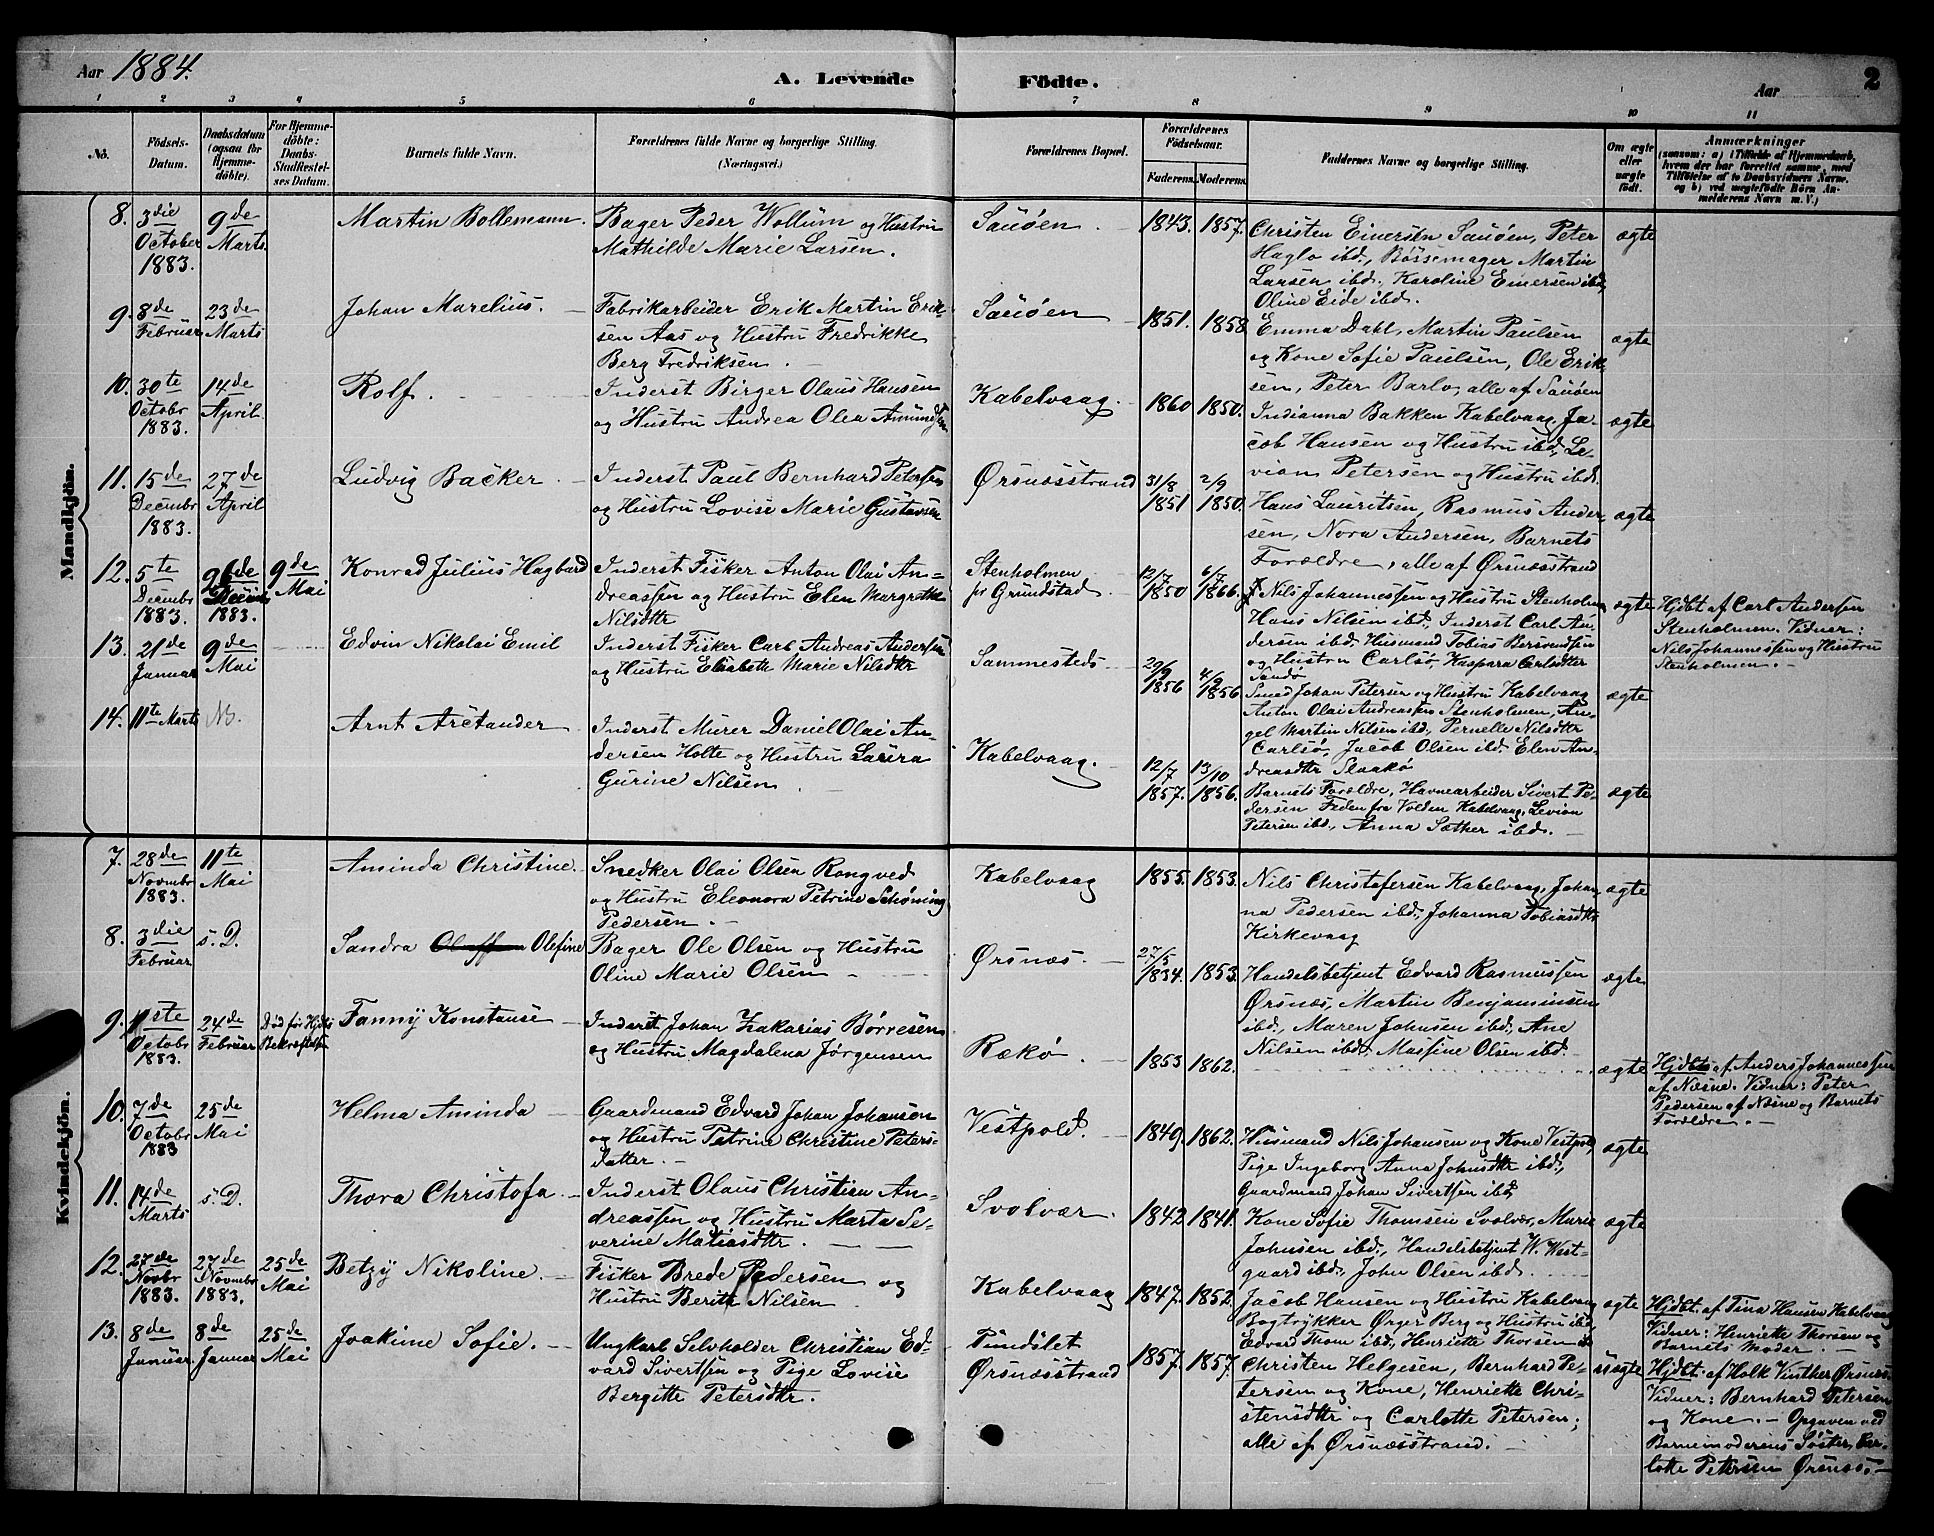 Aar 1884. A. Levende Födte. Aar 2
1 2 3 4 5 6 7 8 9 10 11
No. Födsels-Datum. Daabsdatum (ogsaa for Hjemme-döbte). For Hjemme-döbte: Daabs-Stadfæstel-ses Datum. Barnets fulde Navn. Forældrenes fulde Navne og borgerlige Stilling. (Næringsvei.) Forældrenes Bopæl. Forældrenes Födselsaar. Faderens. Moderens. Faddernes Navne og borgerlige Stilling. Om ægte eller uægte födt. Anmærkninger (saasom: a) i Tilfælde af Hjemmedaab, hvem der har forrettet samme, med Tilföielse af to Daabsvidners Navne, og b) ved uægtefödte Börn An-melderens Navn m. V.)
Mandkjön.
8. 3die October 1883. 9de Marts Martin Bollemann. Bager Peder Wollum og Hustru
Mathilde Marie Larsen. Sauöen 1843. 1857. Christen Einersen Sauöen, Peter
Haglo ibd., Børsemager Martin
Larsen ibd. Karoline Einersen ibd,
Oline Eide ibd. ægte
9. 8de Februar 23de Marts Johan Marelius. Fabrikarbeider Erik Martin Erik-
sen Aas og Hustru Fredrikke
Berg Fredriksen. Sauöen 1851. 1858 Emma Dahl, Martin Paulsen
og Kone Sofie Paulsen, Ole Erik-
sen, Peter Barlo, alle af Sauöen ægte
10. 30te Octobr 1883. 14de April. Rolf. Inderst Birger Olaus Hansen
og Hustru Andrea Olea Amundsen Kabelvaag. 1860 1850. Indianna Bakken Kabelvaag, Ja-
cob Hansen og Hustru ibd, Le-
vian Petersen og Hustru ibd. ægte
11. 15de Decembr 1883. 27de April Ludvig Backer Inderst Paul Bernhard Petersen
og Hustru Lovise Marie Gustavsen Ørsnæsstrand 31/8 1851 2/9 1850. Hans Lauritsen, Rasmus Ander-
sen, Nora Andersen, Barnets
Forældre, alle af Ørsnæsstrand ægte
12. 5te Decembr 1883. 1883. 9de Mai Konrad Julius Hagbard Inderst Fisker Anton Olai An-
dreassen og Hustru Elen Margrethe
Nilsdtr Stenholmen pr Grundstad 12/7 1850 6/7 1866. Nils Johannessen og Hustru Stenholmen
Hans Nilsen ibd, Inderst Carl An-
dersen ibd, Husmand Tobias Berentsen
og Hustru Carlsö, Kaspara Carlsdtr
Sandö ægte Hjdbt af Carl Andersen
Stenholmen. Vidner:
Nils Johannessen og Hustru
Stenholmen.
13. 21de Januar 9de Mai Edvin Nikolai Emil Inderst Fisker Carl Andreas Andersen
og Hustru Elisabeth Marie Nilsdtr Sammesteds 29/9 1856 4/9 1856 Smed Johan Petersen og Hustru Kabelvaag
Anton Olai Andreassen Stenholmen, An-
gel Martin Nilsen ibd, Pernelle Nilsdtr
Carlsö, Jacob Olsen ibd. Elen An-
dreasdtr Slaakö ægte
14. 11te Marts Arnt Arctander Inderst Murer Daniel Olai An-
dersen Holte og Hustru Laura
Gurine Nilsen Kabelvaag. 12/7 1857. 13/10 1856. Barnets Forældre, Havnearbeider Sivert Pe-
dersen Feden fra Volden Kabelvaag, Levion
Petersen ibd., Anna Sæther ibd. ægte
Kvindekjön.
7. 28de Novmbr 1883. 11te Mai Aminda Christine Snedker Olai Olsen Rongved
og Hustru Eleonora Petrine Schöning
Pedersen. Kabelvaag 1855. 1853. Nils Christofersen Kabelvaag, Johan-
na Pedersen ibd, Johanna Tobiasdtr
Kirkevaag ægte
8. 3die Februar s. D. Sandra Olefine Bager Ole Olsen og Hustru
Oline Marie Olsen Ørsnæs. 27/5 1834. 1853. Handelsbetjent Edvard Rasmussen
Ørsnæs, Martin Benjaminsen
ibd., Maren Johnsen ibd., Ane
Nilsen ibd, Massine Olsen ibd. ægte
9. Octobr 1883. 24de Februar Död før Hjdbs Bekræftelsen Fanny Konstanse Inderst Johan Zakarias Börresen
og Hustru Magdalena Jørgensen Rækø 1853 1862. ægte Hjdbt af Anders Johannessen
af Næsne. Vidner: Peter
Pedersen af Næsne og Barnets
Forældre.
10. 7de Octobr 1883 25de Mai Helma Aminda Gaardmand Edvard Johan Johansen
og Hustru Petrine Christine Peters-
datter. Vestpold. 1849. 1862. Husmand Nils Johansen og Kone Vestpold,
Pige Ingeborg Anna Johnsdtr ibd.,
Gaardmand Johan Sivertsen ibd, ægte
11. 14de Marts s. D. Thora Christofa Inderst Olaus Christian An-
dreassen og Hustru Marta Se-
verine Matiasdtr. Svolvær. 1842 1841. Kone Sofie Thomsen Svolvær, Marie
Johnsen ibd., Handelsbetjent W. West-
gaard ibd., John Olsen ibd. ægte
12. 27de Novbr 1883. 27de Novmbr 1883. 25de Mai Betzy Nikoline. Fisker Brede Pedersen og
Hustru Berith Nilsen Kabelvaag 1847. 1852. Jacob Hansen og Hustru Kabelvaag
Bogtrykker Ørger Berg og Hustru ibd
Edvard Thom ibd., Henriette Thorsen ib ægte Hjdbt. af Tina Hansen Kabelvaag
Vidner: Henriette Thorsen og
Barnets Moder.
13. 8de Januar. 8de Januar 25de Mai Joakime Sofie. Ungkarl Selvholder Christian Ed-
vard Sivertsen og Pige Lovise
Bergitte Petersdtr. Pundslet
Ørsnæsstrand 1857. 1857. Christen Helgesen, Bernhard Pe-
tersen og Kone, Henriette Chri-
stensdtr og Carlotte Petersen;
alle af Ørsnæsstrand. uægte Hjdbt. af Holk Vinther Ørsnæs.
Vidner: Bernhard Petersen
og Kone. – Opgaven ved
Barnemoderens Søster, Car-
lotte Petersen Ørsnæs.